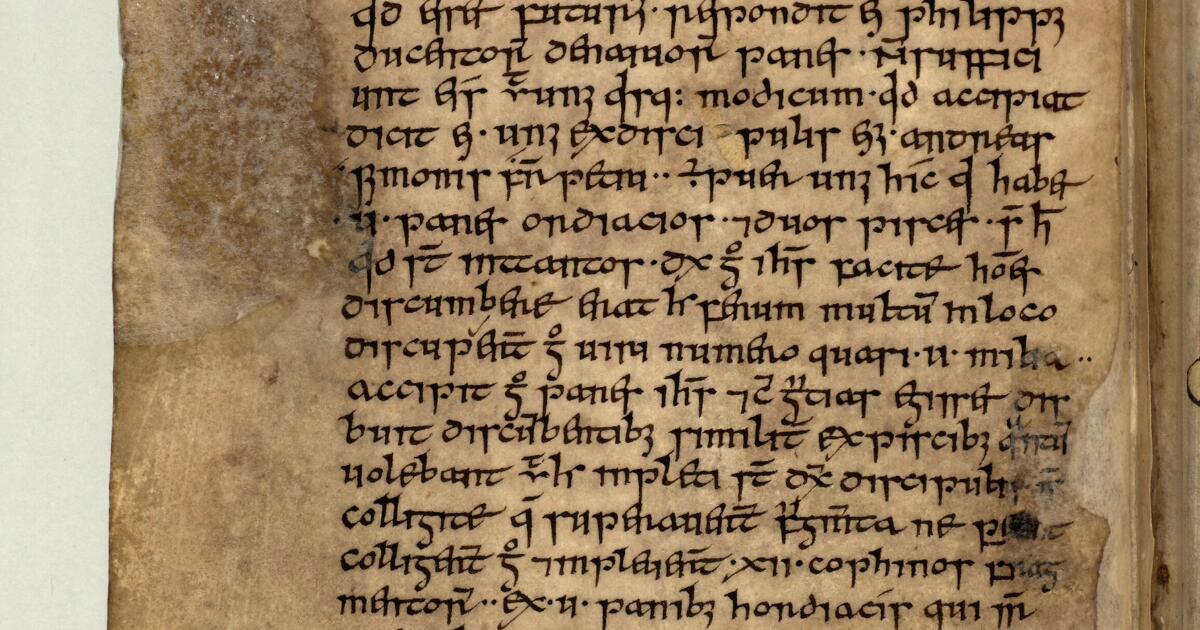 qd esset futurus· respondit ei philippus
ducentorum denariorum panes · non suffici
unt eis ut unusquisque: modicum· quid accipiat
dicit ei · unus ex discipulis eius · andreas
simonis frater petri ·· est puer unus hic qui habet
·u· panes ordiacios · ⁊ duos pisces · sed haec
quid sunt inter tantos · dixit ergo ihs facite homines
discumbere erat autem fenum multum in loco
discubuerunt ergo uiri numero quasi ·u· milia ··
accipit ergo panes ihs ⁊ cum gratias egisset dis
buit discumbentibus similiter ex piscibus quantum
uolebant ut autem impleti sunt dixit discipulis
colligite quae superauerunt fragmenta ne
collegerunt ergo ⁊ impleuerunt · xii · cophinos frag
mentorum ·· ex ·u· panibus hordiacis qui